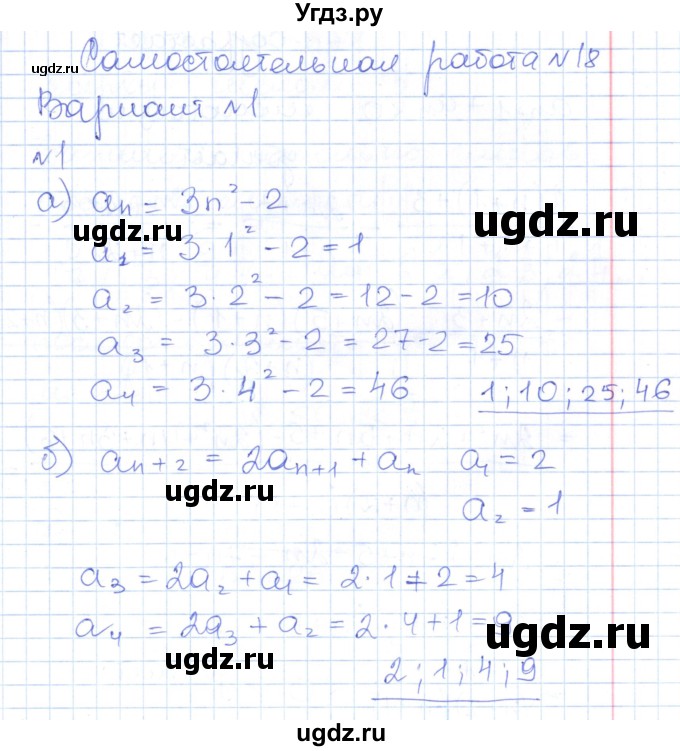 Угдз.ру
Самостоятельная работа №18
ugdz.ru
Вариант №1
№1
а) aₙ = 3n² - 2
ugdz.ru
ugdz.ru
a₁ = 3·1² - 2 = 1
a₂ = 3·2² - 2 = 12 - 2 = 10
a₃ = 3·3² - 2 = 27 - 2 = 25
a₄ = 3·4² - 2 = 46 1; 10; 25; 46
б) aₙ₊₂ = 2aₙ₊₁ + aₙ a₁ = 2
ugdz.ru
a₂ = 1
a₃ = 2a₂ + a₁ = 2·1 + 2 = 4
a₄ = 2a₃ + a₂ = 2·4 + 1 = 9
ugdz.ru
ugdz.ru
2; 1; 4; 9
ugdz.ru